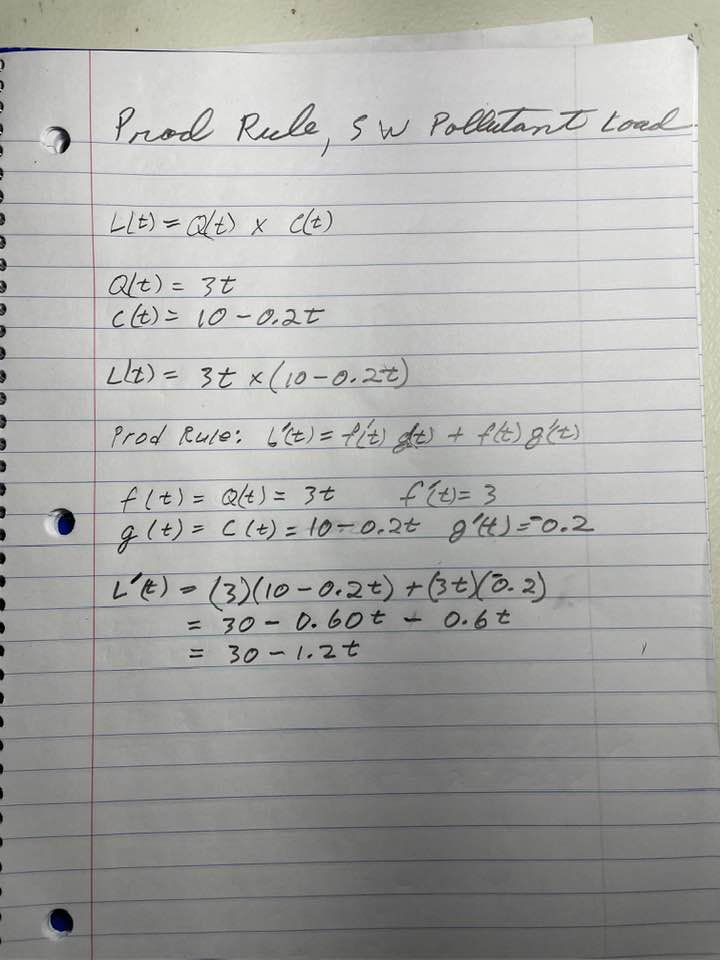 Prod Rule, SW Pollutant Load
L(t) = Q(t) x C(t)
Q(t) = 3t
C(t) = 10 - 0.2t
L(t) = 3t x (10 - 0.2t)
Prod Rule: L'(t) = f'(t) g(t) + f(t) g'(t)
f(t) = Q(t) = 3t f'(t) = 3
g(t) = C(t) = 10 - 0.2t g'(t) = -0.2
L'(t) = (3)(10 - 0.2t) + (3t)(-0.2)
= 30 - 0.60t - 0.6t
= 30 - 1.2t